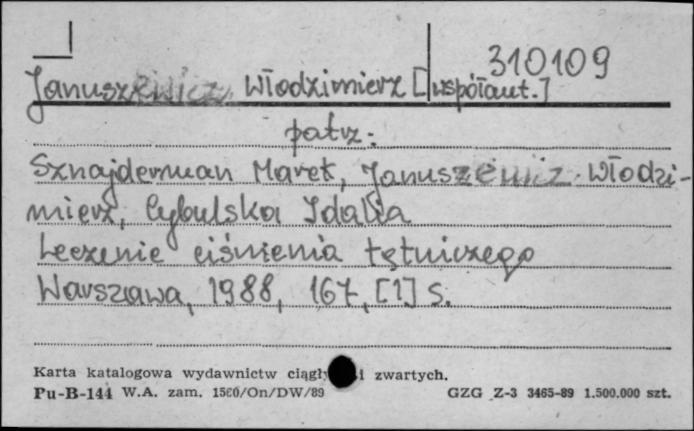 310109
Januszewicz Włodzimierz [współaut.]
patrz:
Sznajderman Marek, Januszewicz Włodzi-
mierz, Cybulska Idalia
Leczenie ciśnienia tętniczego
Warszawa, 1988, 167, [1] s.
Karta katalogowa wydawnictw zwartych.
Pu-B-144 W.A. zam. 1560/On/DW/89 GZG Z-3 3465-89 1.500.000 szt.